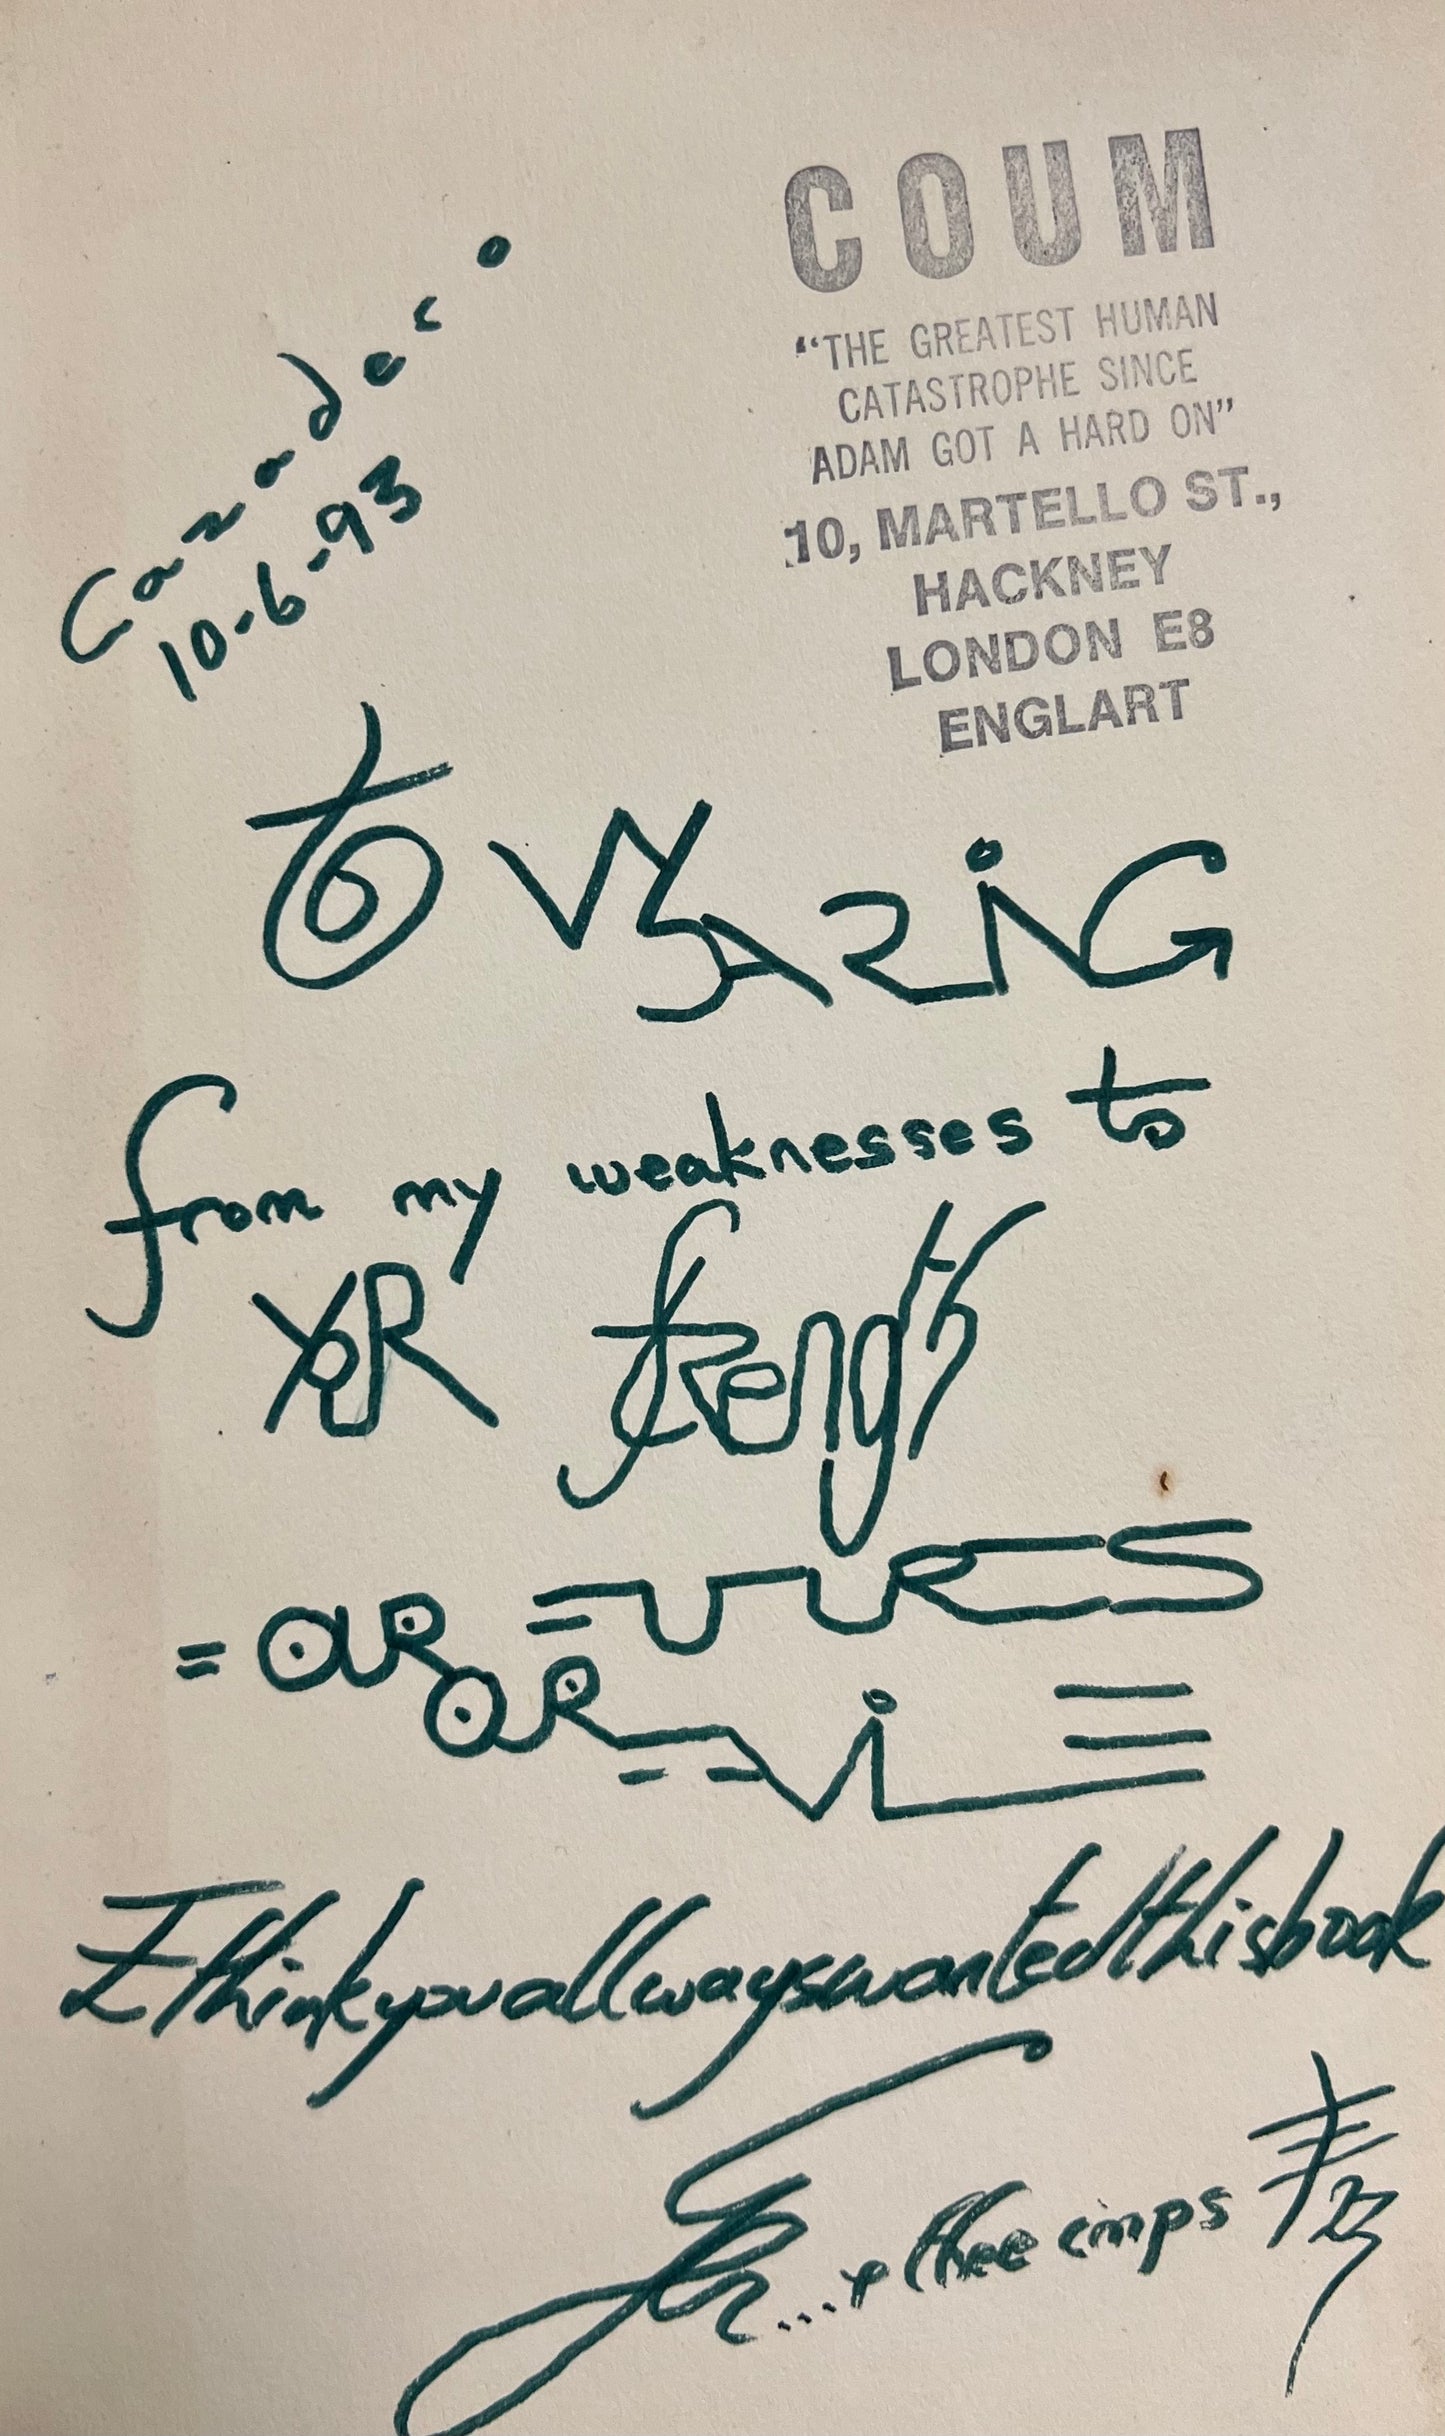 COUM
“THE GREATEST HUMAN
CATASTROPHE SINCE
ADAM GOT A HARD ON”
10, MARTELLO ST.,
HACKNEY
LONDON E8
ENGLART
10-6-93
to
from my weaknesses to
YOUR strength
= OUR
OUR
I think you allways wanted this book
... + thee imps
23